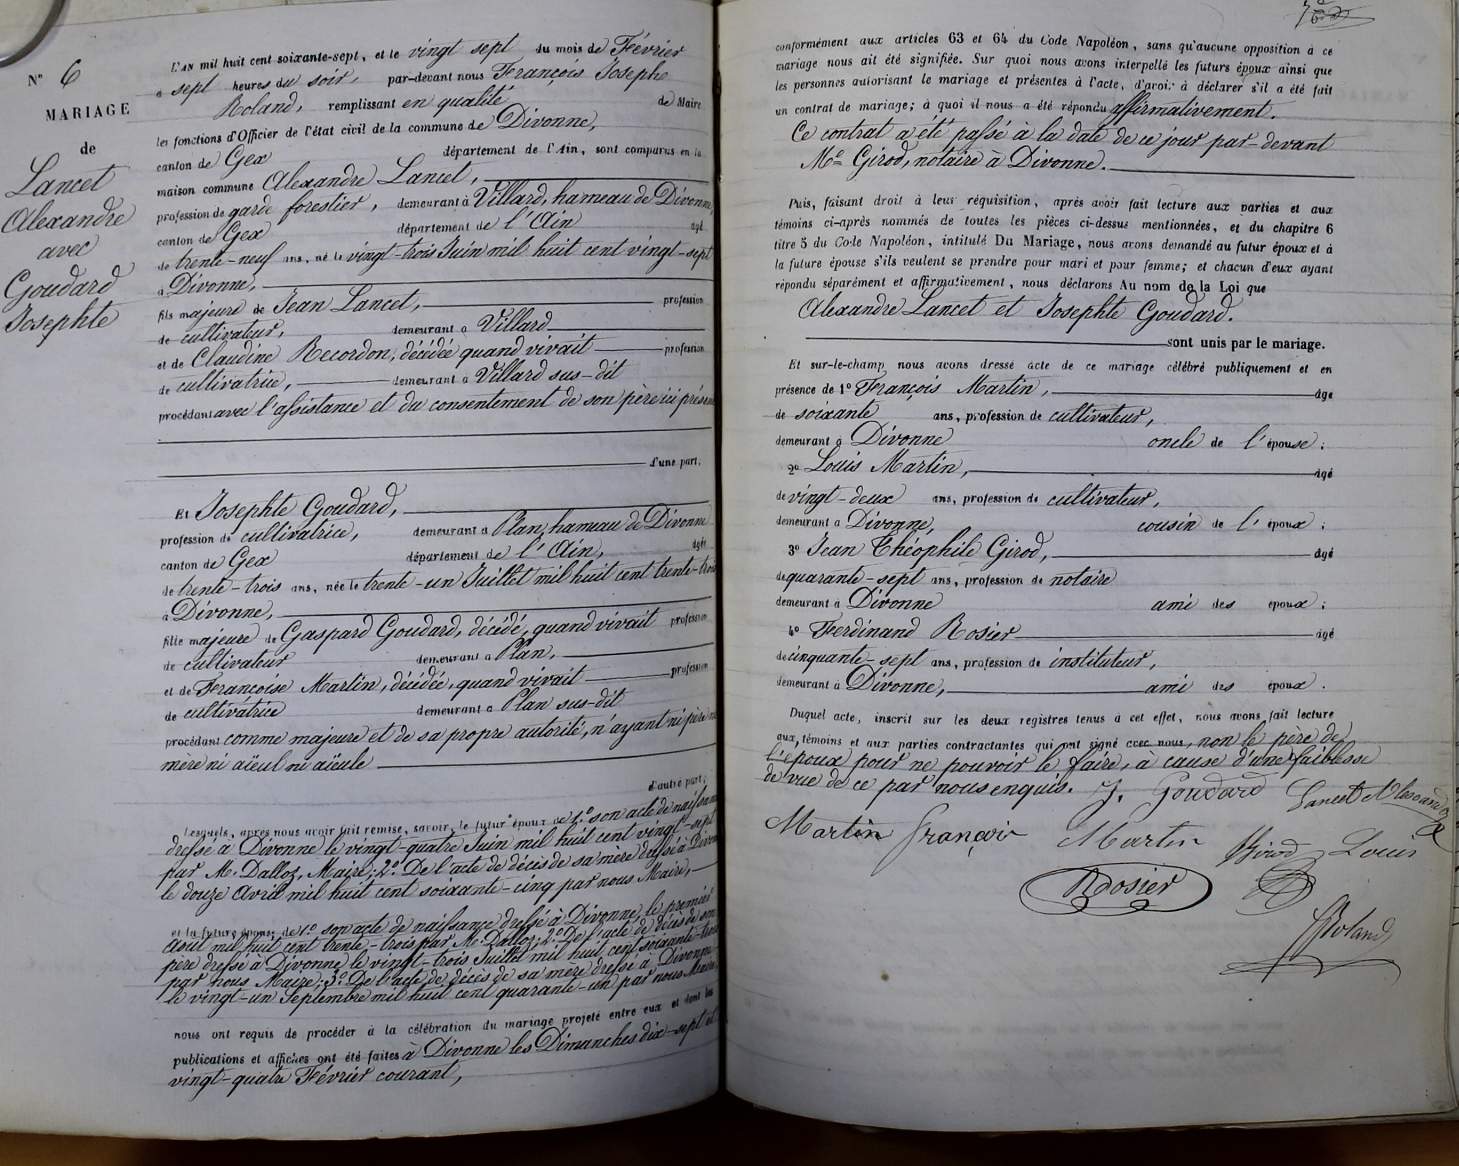 N° 6
MARIAGE
de
Lancet
Alexandre
avec
Goudard
Josephte
L'AN mil huit cent soixante-sept, et le vingt sept du mois de Février
à sept heures du soir, par-devant nous François Josephe
Roland, remplissant en qualité de Maire
les fonctions d'Officier de l'état civil de la commune de Divonne,
canton de Gex département de l'Ain, sont comparus en la
maison commune Alexandre Lancet,
profession de garde forestier, demeurant à Villard, hameau de Divonne,
canton de Gex département de l'Ain agé
de trente-neuf ans, né le vingt-trois Juin mil huit cent vingt-sept
à Divonne,
fils majeure de Jean Lancet, profession
de cultivateur, demeurant à Villard
et de Claudine Recordon, décédée quand vivait profession
de cultivatrice, demeurant à Villard sus-dit
procédant avec l'assistance et du consentement de son père ici présent
d'une part,
Et Josephte Goudard,
profession de cultivatrice, demeurant à Plan, hameau de Divonne
canton de Gex département de l'Ain, agée
de trente-trois ans, née le trente-un Juillet mil huit cent trente-trois
à Divonne,
fille majeure de Gaspard Goudard, décédé, quand vivait profession
de cultivateur demeurant à Plan,
et de Françoise Martin, décédée, quand vivait profession
de cultivatrice demeurant à Plan sus-dit
procédant comme majeure et de sa propre autorité, n'ayant ni père ni
mère ni aïeul ni aïeule
d'autre part;
Lesquels, après nous avoir fait remise, savoir, le futur époux de 1° son acte de naissance
dressé à Divonne le vingt-quatre Juin mil huit cent vingt-sept
par M. Dalloz, Maire; 2° De l'acte de décès de sa mère dressé à Divonne
le douze Avril mil huit cent soixante-cinq par nous Maire,
et la future épouse, de 1° son acte de naissance dressé à Divonne, le premier
Août mil huit cent trente-trois par M. Dalloz; 2° De l'acte de décès de son
père dressé à Divonne le vingt-trois Juillet mil huit cent soixante-trois
par nous Maire; 3° De l'acte de décès de sa mère dressé à Divonne
le vingt-un Septembre mil huit cent quarante-un par nous Maire,
nous ont requis de procéder à la célébration du mariage projeté entre eux et dont les
publications et affiches ont été faites à Divonne les Dimanches dix-sept et
vingt-quatre Février courant,
conformément aux articles 63 et 64 du Code Napoléon, sans qu'aucune opposition à ce
mariage nous ait été signifiée. Sur quoi nous avons interpellé les futurs époux ainsi que
les personnes autorisant le mariage et présentes à l'acte, d'avoir à déclarer s'il a été fait
un contrat de mariage; à quoi il nous a été répondu affirmativement.
Ce contrat a été passé à la date de ce jour par-devant
Me Girod, notaire à Divonne.
Puis, faisant droit à leur réquisition, après avoir fait lecture aux parties et aux
témoins ci-après nommés de toutes les pièces ci-dessus mentionnées, et du chapitre 6
titre 5 du Code Napoléon, intitulé Du Mariage, nous avons demandé au futur époux et à
la future épouse s'ils veulent se prendre pour mari et pour femme; et chacun d'eux ayant
répondu séparément et affirmativement, nous déclarons Au nom de la Loi que
Alexandre Lancet et Josephte Goudard.
sont unis par le mariage.
Et sur-le-champ nous avons dressé acte de ce mariage célébré publiquement et en
présence de 1° François Martin, âgé
de soixante ans, profession de cultivateur,
demeurant à Divonne oncle de l'épouse;
2° Louis Martin, âgé
de vingt-deux ans, profession de cultivateur,
demeurant à Divonne, cousin de l'époux;
3° Jean Théophile Girod, âgé
de quarante-sept ans, profession de notaire
demeurant à Divonne ami des époux;
4° Ferdinand Rosier âgé
de cinquante-sept ans, profession de instituteur,
demeurant à Divonne, ami des époux.
Duquel acte, inscrit sur les deux registres tenus à cet effet, nous avons fait lecture
aux témoins et aux parties contractantes qui ont signé avec nous, non le père de
l'époux pour ne pouvoir le faire, à cause d'une faiblesse
de vue de ce par nous enquis. J. Goudard Lancet Alexandre
Martin françois Martin Girod Louis
Rosier
Roland